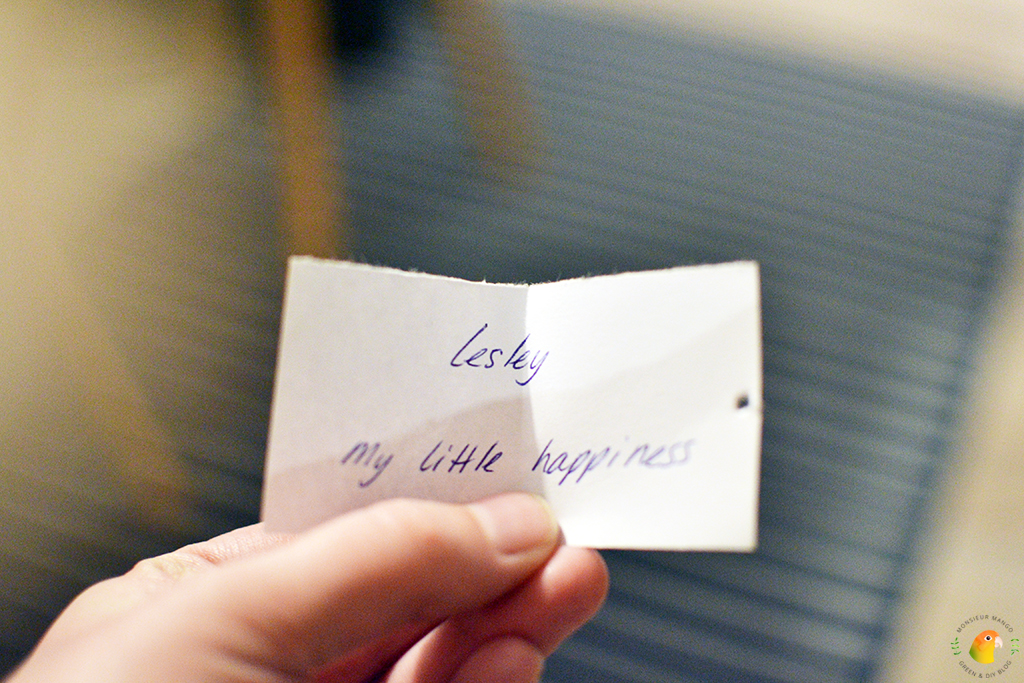 Lesley
my little happiness
MONSIEUR MANGO
GREEN & DIY BLOG